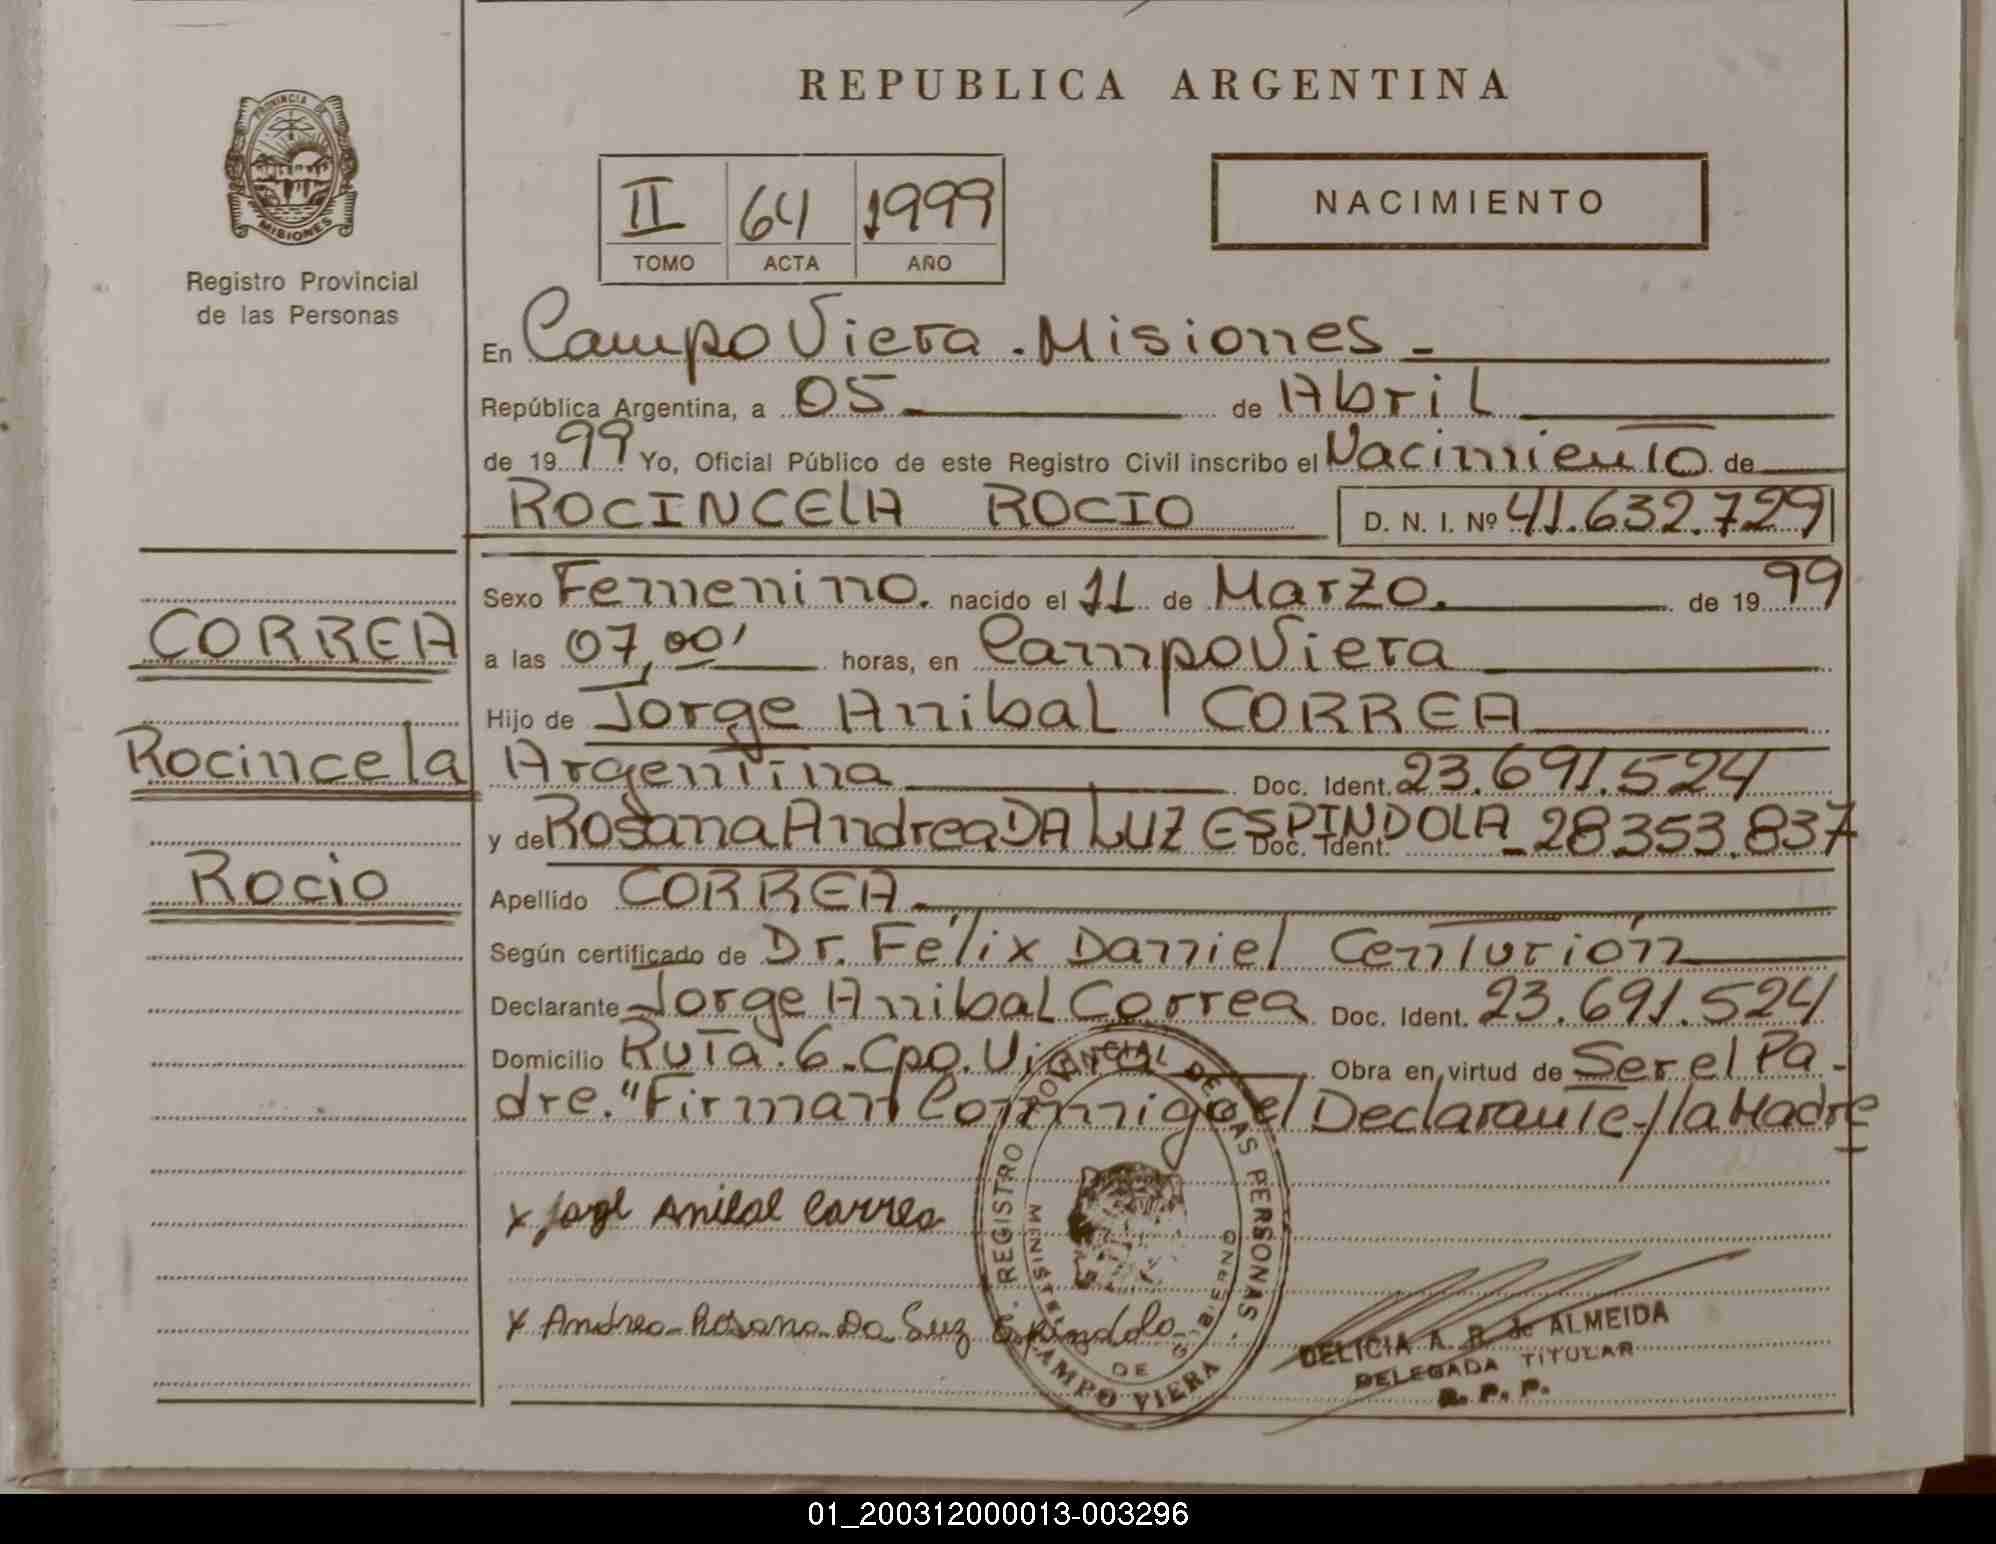 REPUBLICA ARGENTINA
PROVINCIA DE
MISIONES
Registro Provincial
de las Personas
II 64 1999
TOMO ACTA AÑO
NACIMIENTO
En Campo Viera . Misiones -
República Argentina, a 05 de Abril
de 1999 Yo, Oficial Público de este Registro Civil inscribo el Nacimiento de
ROCINCELA ROCIO D. N. I. Nº 41.632.729
CORREA
Rocincela
Rocio
Sexo Femenino. nacido el 11 de Marzo. de 1999
a las 07,00' horas, en Campo Viera
Hijo de Jorge Anibal CORREA
Argentina Doc. Ident. 23.691.524
y de Rosana Andrea DA LUZ ESPINDOLA - Doc. Ident. 28.353.837
Apellido CORREA -
Según certificado de Dr. Félix Daniel Centurión
Declarante Jorge Anibal Correa Doc. Ident. 23.691.524
Domicilio Ruta. 6 - Cpo. Viera Obra en virtud de Ser el Pa-
dre. "Firman Conmigo el Declarante y la Madre
x Jorge Anibal Correa
x Andrea Rosana Da Luz Espindola
REGISTRO PROVINCIAL DE LAS PERSONAS
MINISTERIO DE GOBIERNO
CAMPO VIERA
DELICIA A. R. de ALMEIDA
DELEGADA TITULAR
R. P. P.
01_200312000013-003296